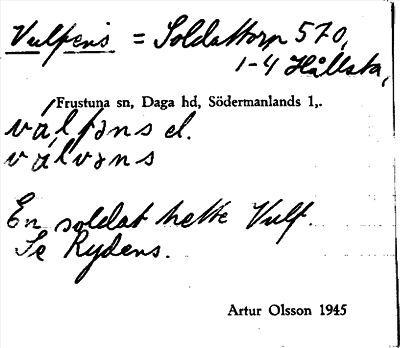 Vulpens = Soldattorp 570,
1-4 Hållsta,
Frustuna sn, Daga hd, Södermanlands l,.
vál fəns el.
válvəns
En soldat hette Vulf.
Se Rydens.
Artur Olsson 1945